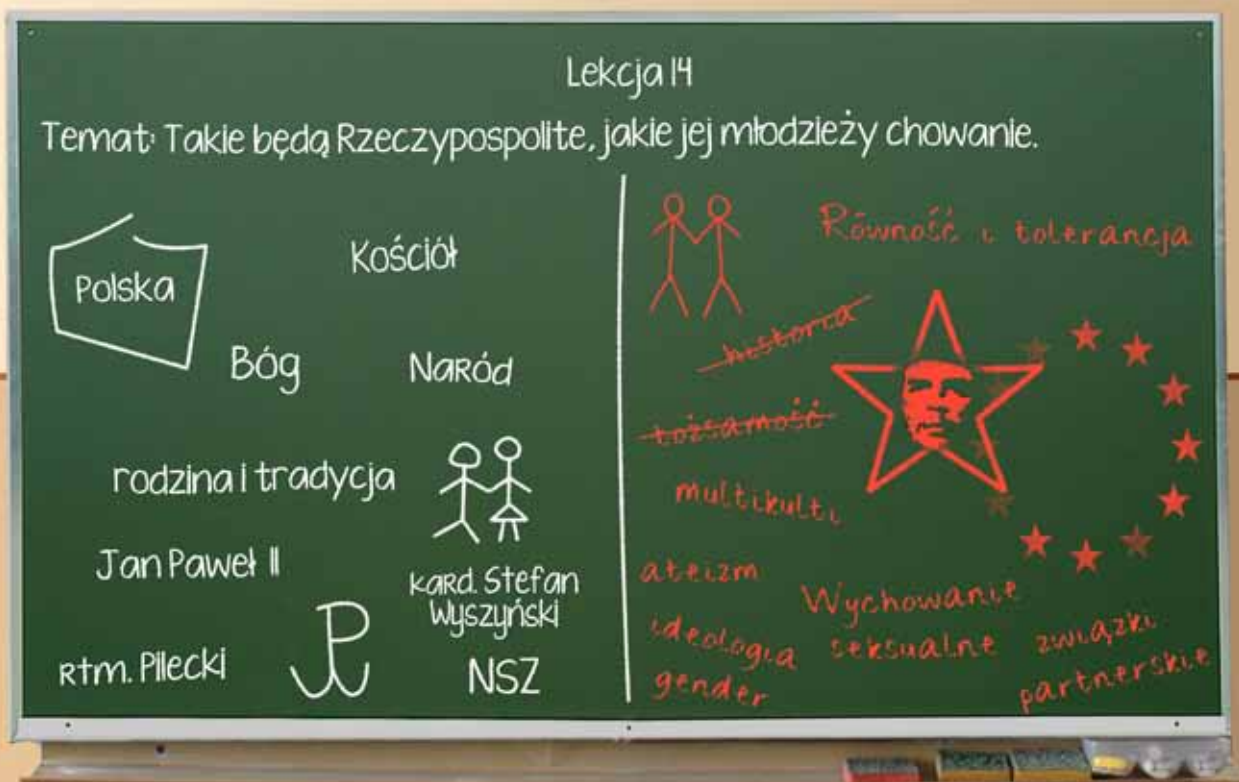 Lekcja 14
Temat: Takie będą Rzeczypospolite, jakie jej młodzieży chowanie.
Polska
Kościół
Bóg
Naród
rodzina i tradycja
Jan Paweł II
kard. Stefan
Wyszyński
rtm. Pilecki
NSZ
Równość i tolerancja
historia
tożsamość
multikulti
ateizm
ideologia
gender
Wychowanie
seksualne
związki
partnerskie